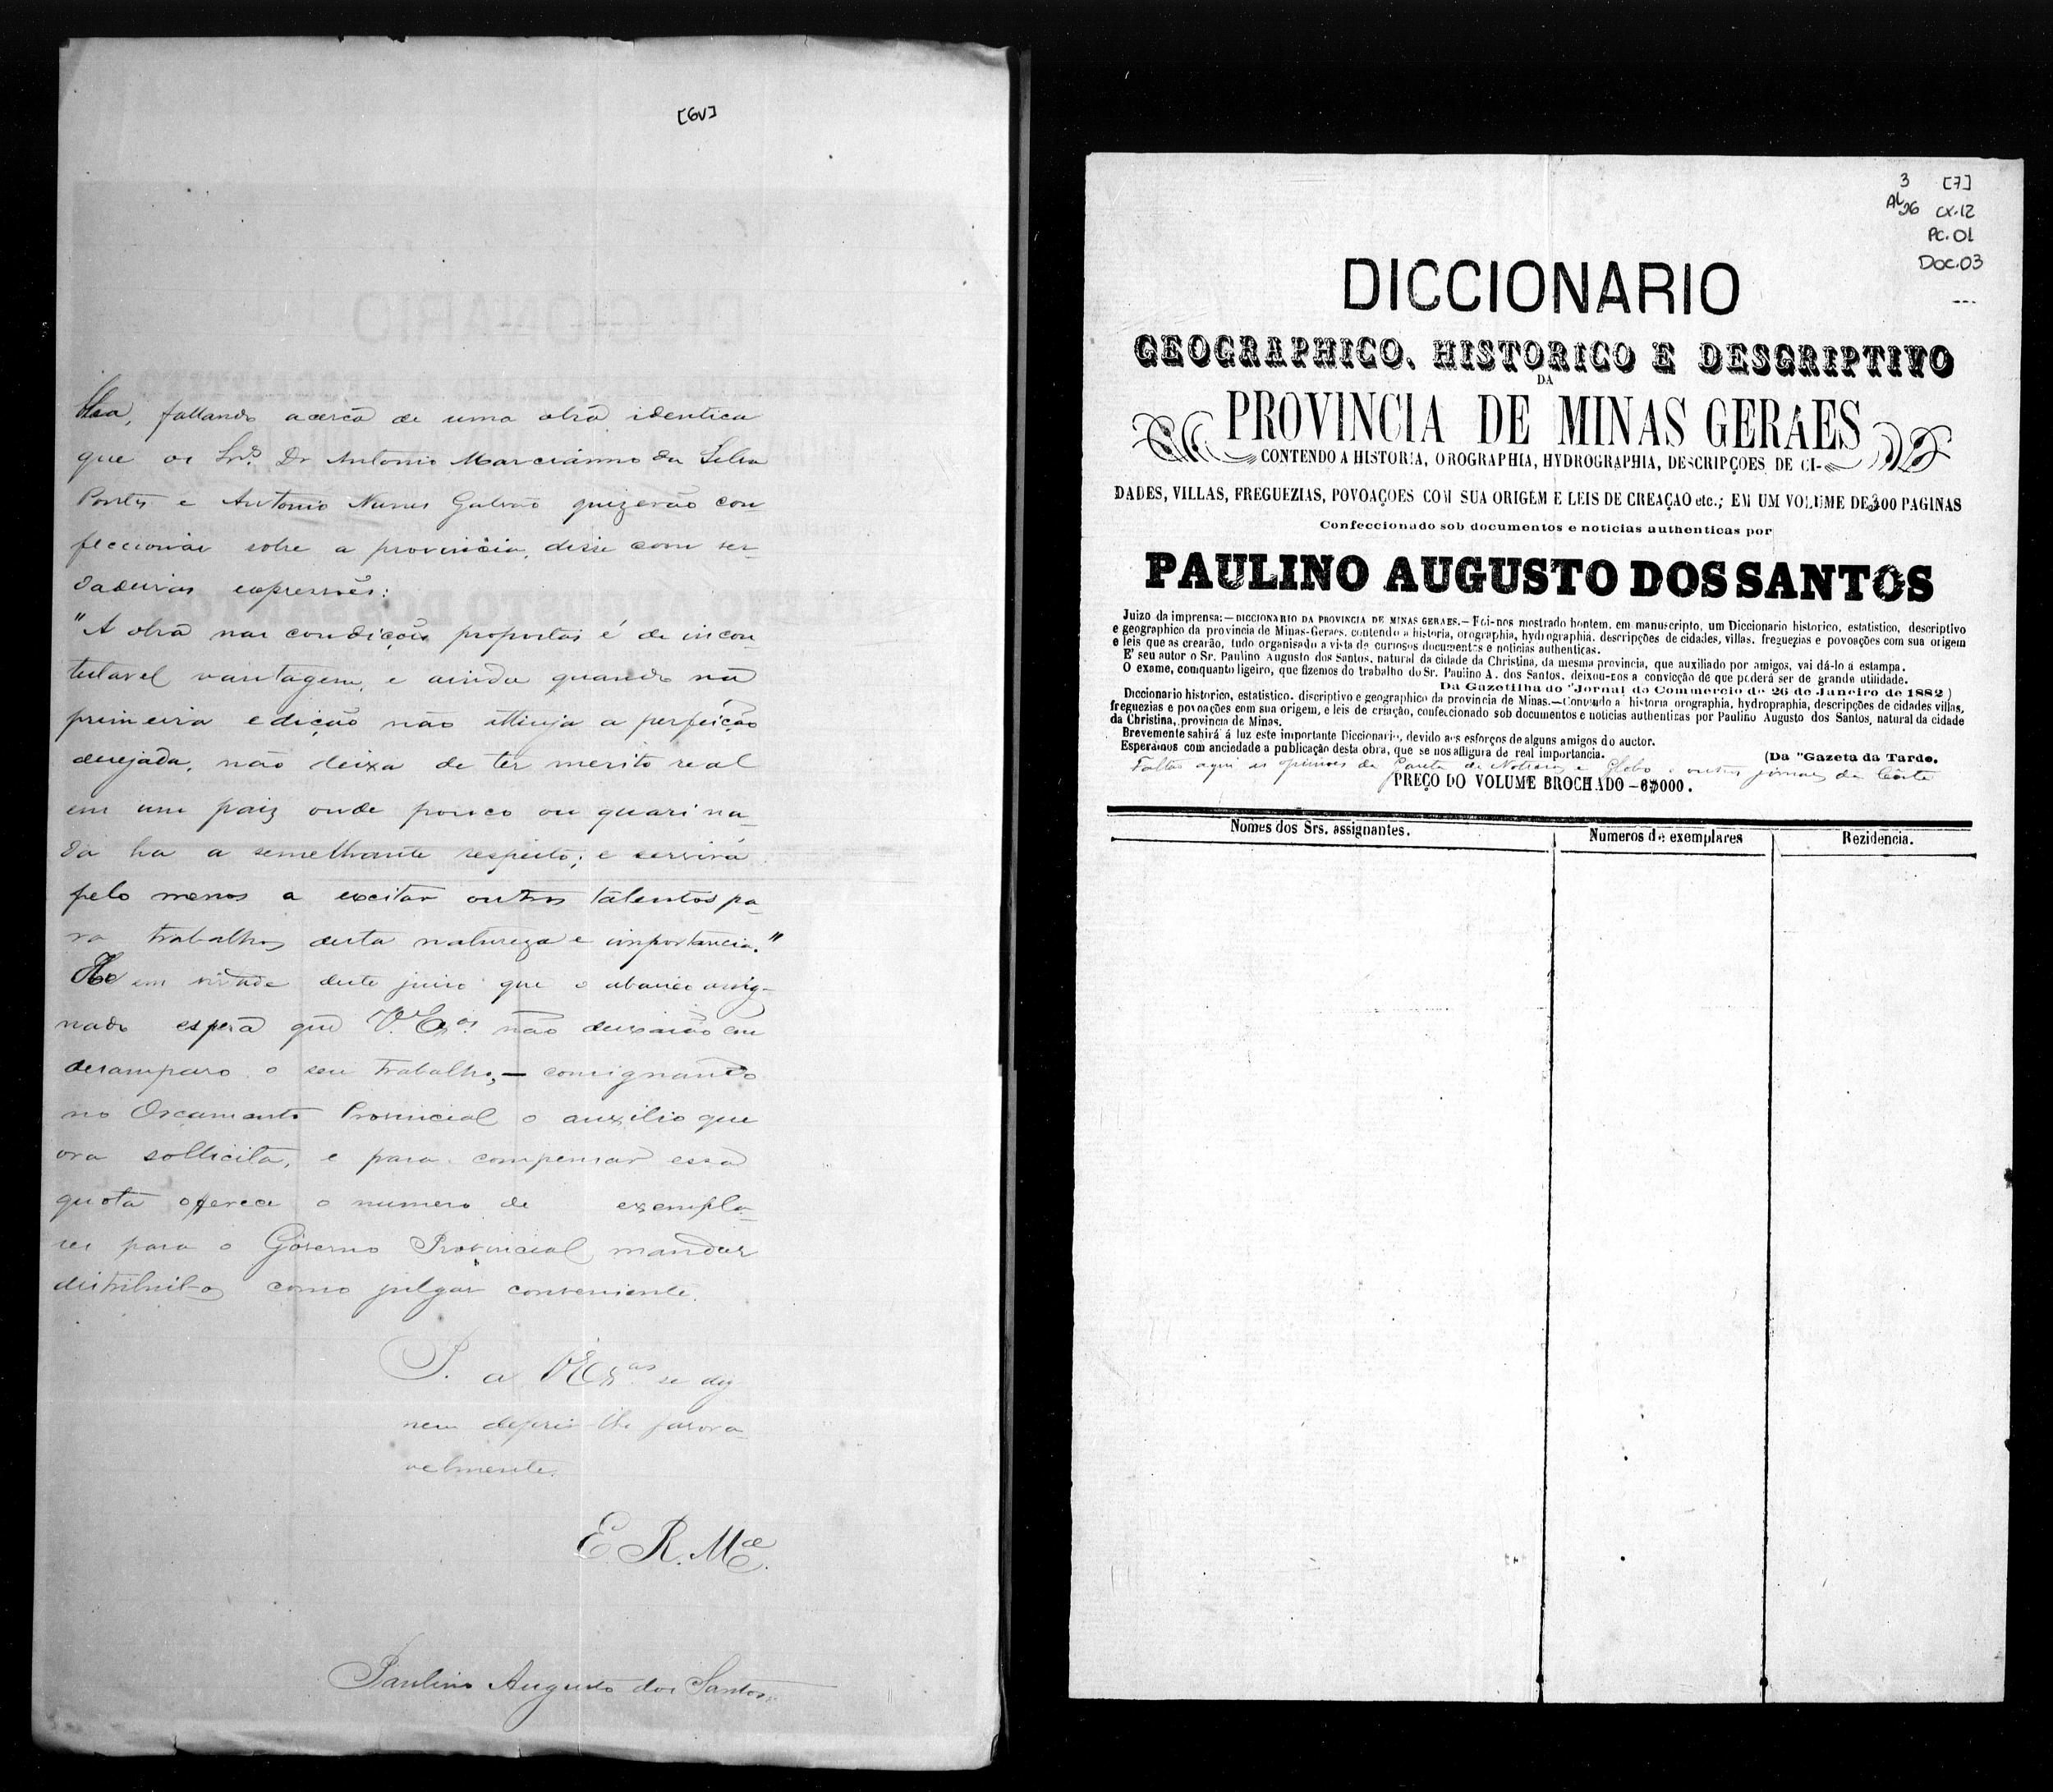 [6v]
fallando acerca de uma obra identica
que os Snrs. Dr Antonio Marcianno da Silva
Pontes e Antonio Nunes Galvão quizerão con-
feccionar sobre a provincia, disse com ver-
dadeiras expressões:
"A obra nas condições propostas é de incon-
testavel vantagem, e ainda quando na
primeira edição não attinja a perfeição
desejada, não deixa de ter merito real
em um paiz onde pouco ou quasi na-
da ha a semelhante respeito; e servirá
pelo menos a excitar outros talentos pa-
ra trabalhos desta natureza e importancia."
He em virtude deste juizo que o abaixo assig-
nado espera que V. Exas. não deixarão em
desamparo o seu trabalho, — consignando
no Orçamento Provincial o auxilio que
ora sollicita, e para compensar essa
quota offerece o numero de exempla-
res para o Governo Provincial mandar
distribuil-os como julgar conveniente.
P. a VExas. se dig
nem deferir-lhe favora-
velmente.
E. R. Mce.
Paulino Augusto dos Santos
3 [7]
AL 26 CX.12
PC.01
Doc.03
DICCIONARIO
GEOGRAPHICO, HISTORICO E DESCRIPTIVO
DA
PROVINCIA DE MINAS GERAES
CONTENDO A HISTORIA, OROGRAPHIA, HYDROGRAPHIA, DESCRIPÇOES DE CI-
DADES, VILLAS, FREGUEZIAS, POVOAÇOES COM SUA ORIGEM E LEIS DE CREAÇAO etc.; EM UM VOLUME DE 300 PAGINAS
Confeccionado sob documentos e noticias authenticas por
PAULINO AUGUSTO DOS SANTOS
Juizo da imprensa:—DICCIONARIO DA PROVINCIA DE MINAS GERAES.—Foi-nos mostrado hontem, em manuscripto, um Diccionario historico, estatistico, descriptivo
e geographico da provincia de Minas-Geraes, contendo a historia, orographia, hydrographia, descripções de cidades, villas, freguezias e povoações com sua origem
e leis que as crearão, tudo organisado a vista de curiosos documentos e noticias authenticas.
E' seu autor o Sr. Paulino Augusto dos Santos, natural da cidade da Christina, da mesma provincia, que auxiliado por amigos, vai dá-lo á estampa.
O exame, comquanto ligeiro, que fizemos do trabalho do Sr. Paulino A. dos Santos, deixou-nos a convicção de que poderá ser de grande utilidade.
Da Gazetilha do "Jornal do Commercio de 26 de Janeiro de 1882)
Diccionario historico, estatistico, discriptivo e geographico da provincia de Minas.—Contendo a historia orographia, hydropraphia, descripções de cidades villas,
freguezias e povoações com sua origem, e leis de criação, confeccionado sob documentos e noticias authenticas por Paulino Augusto dos Santos, natural da cidade
da Christina, provincia de Minas.
Brevemente sahirá á luz este importante Diccionario, devido aos esforços de alguns amigos do auctor.
Esperamos com anciedade a publicação desta obra, que se nos affigura de real importancia. (Da "Gazeta da Tarde.
Faltão aqui as opiniões da Gazeta de Noticias e Globo e outros jornaes da Côrte
PREÇO DO VOLUME BROCHADO—6$000.
Nomes dos Srs. assignantes. Numeros de exemplares Rezidencia.